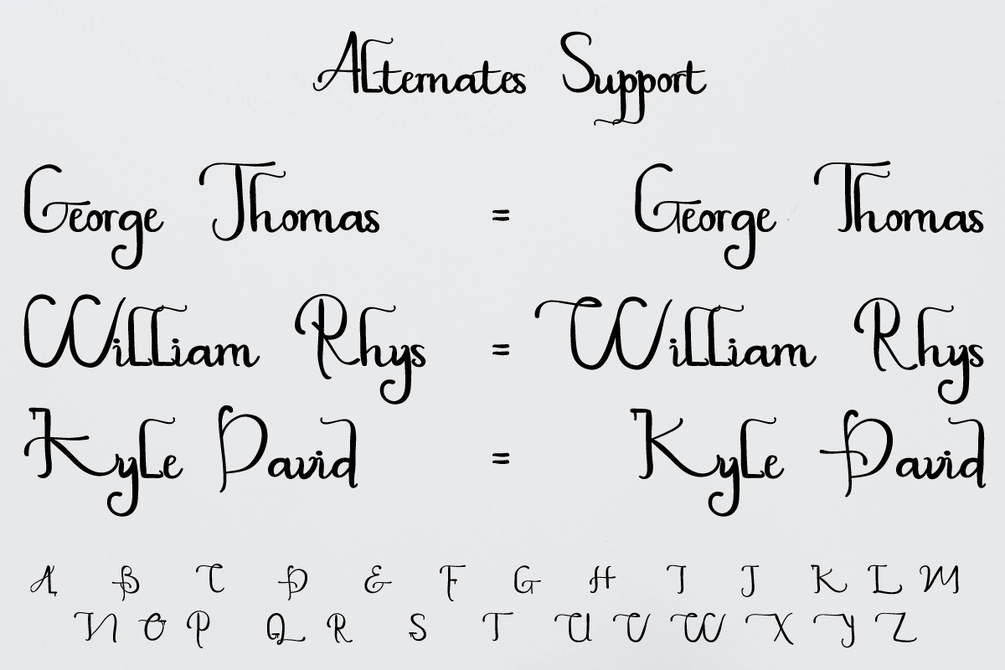 Alternates Support
George Thomas = George Thomas
William Rhys = William Rhys
Kyle David = Kyle David
A B C D E F G H I J K L M
N O P Q R S T U V W X Y Z